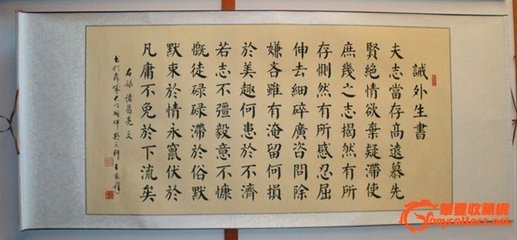 誡外生書
夫志當存高遠慕先
賢絕情欲棄疑滯使
庶幾之志揭然有所
存惻然有所感忍屈
伸去細碎廣咨問除
嫌吝雖有淹留何損
於美趣何患於不濟
若志不彊毅意不慷
慨徒碌碌滯於俗默
默束於情永竄伏於
凡庸不免於下流矣
右錄諸葛亮文
华夏收藏网
mycollect.net